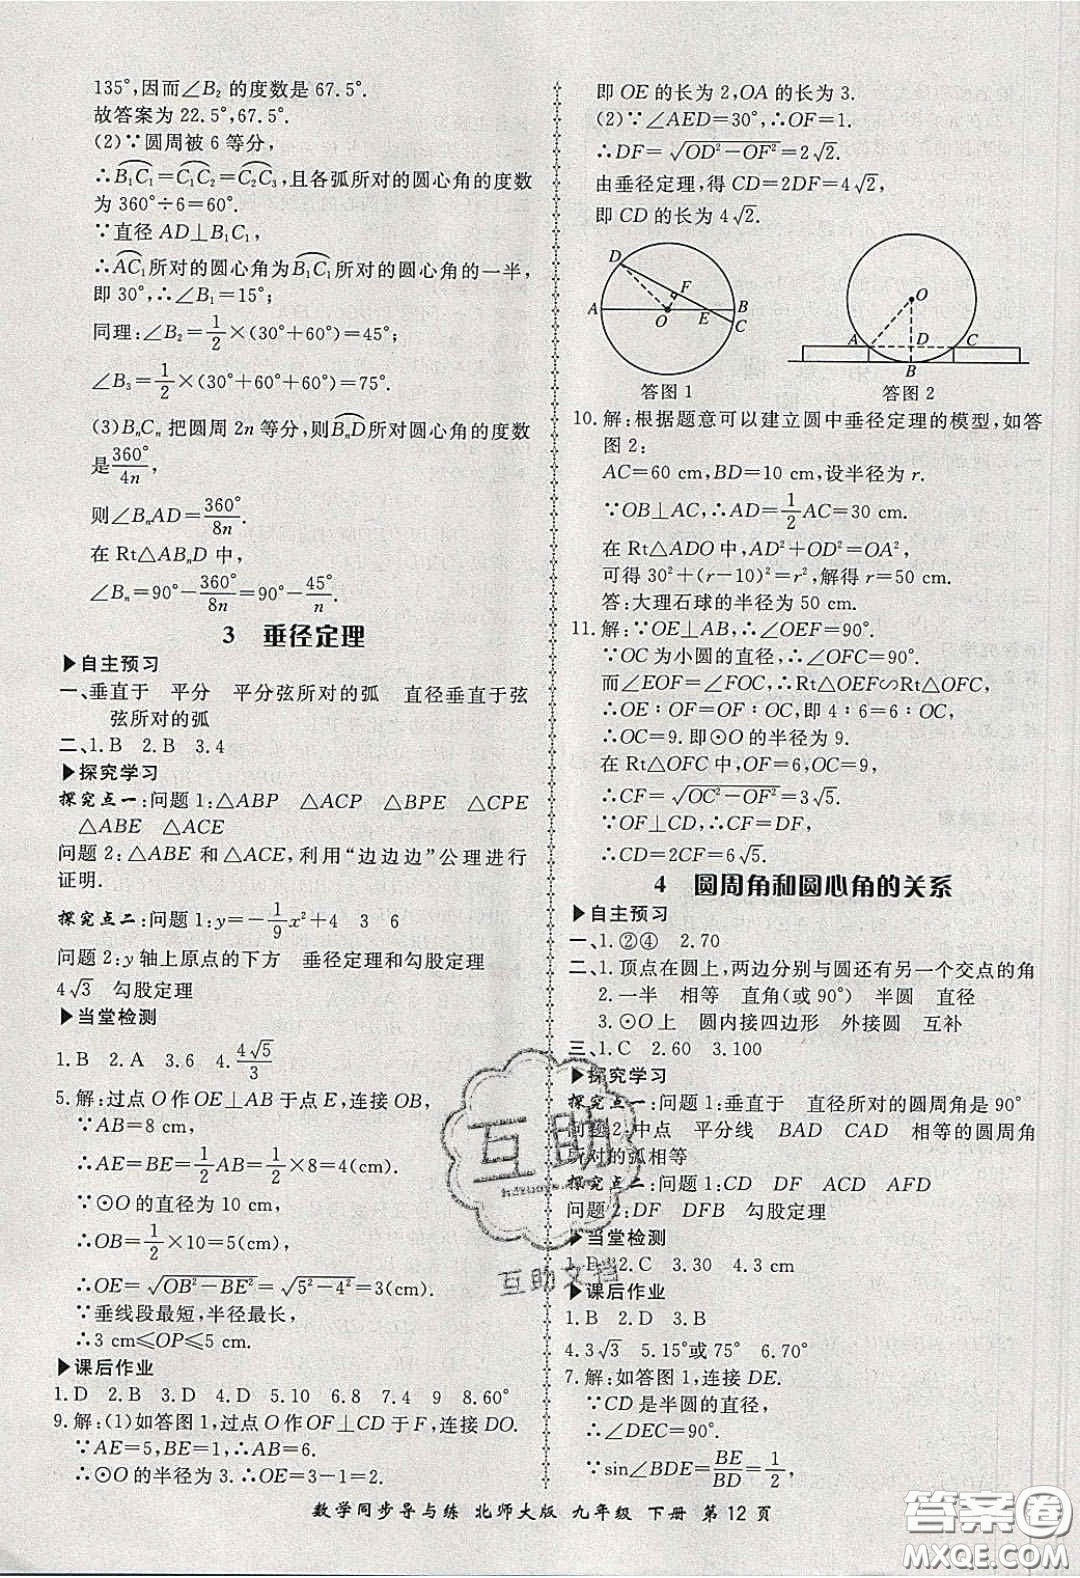 135°,因而∠B₂ 的度数是 67.5°.
故答案为 22.5°,67.5°.
(2)∵圆周被 6 等分,
∴B₁C₁=C₁C₂=C₂C₃,且各弧所对的圆心角的度数
为 360°÷6=60°.
∵直径 AD⊥B₁C₁,
∴AC₁所对的圆心角为B₁C₁所对的圆心角的一半,
即 30°,∴∠B₁=15°;
同理:∠B₂=1/2×(30°+60°)=45°;
∠B₃=1/2×(30°+60°+60°)=75°.
(3)BₙCₙ 把圆周 2n 等分,则BₙD所对圆心角的度数
是360°/4n,
则∠BₙAD=360°/8n.
在 Rt△ABₙD 中,
∠Bₙ=90°-360°/8n=90°-45°/n.
3 垂径定理
▶自主预习
一、垂直于 平分 平分弦所对的弧 直径垂直于弦
弦所对的弧
二、1.B 2.B 3.4
▶探究学习
探究点一:问题 1:△ABP △ACP △BPE △CPE
△ABE △ACE
问题 2:△ABE 和△ACE,利用“边边边”公理进行
证明.
探究点二:问题 1:y=-1/9x²+4 3 6
问题 2:y 轴上原点的下方 垂径定理和勾股定理
4√3 勾股定理
▶当堂检测
1.B 2.A 3.6 4.4√5/3
5.解:过点 O 作 OE⊥AB 于点 E,连接 OB,
∵AB=8 cm,
∴AE=BE=1/2AB=1/2×8=4(cm).
∵⊙O 的直径为 10 cm,
∴OB=1/2×10=5(cm),
∴OE=√(OB²-BE²)=√(5²-4²)=3(cm).
∵垂线段最短,半径最长,
∴3 cm≤OP≤5 cm.
▶课后作业
1.D 2.B 3.D 4.D 5.10 6.8 7.4 9 8.60°
9.解:(1)如答图 1,过点 O 作 OF⊥CD 于 F,连接 DO.
∵AE=5,BE=1,∴AB=6.
∴⊙O 的半径为 3.∴OE=3-1=2.
即 OE 的长为 2,OA 的长为 3.
(2)∵∠AED=30°,∴OF=1.
∴DF=√(OD²-OF²)=2√2.
由垂径定理,得 CD=2DF=4√2,
即 CD 的长为 4√2.
D
F
A
O
E
B
C
答图 1
O
A
D
C
B
答图 2
10.解:根据题意可以建立圆中垂径定理的模型,如答
图 2:
AC=60 cm,BD=10 cm,设半径为 r.
∵OB⊥AC,∴AD=1/2AC=30 cm.
在 Rt△ADO 中,AD²+OD²=OA²,
可得 30²+(r-10)²=r²,解得 r=50 cm.
答:大理石球的半径为 50 cm.
11.解:∵OE⊥AB,∴∠OEF=90°.
∵OC 为小圆的直径,∴∠OFC=90°.
而∠EOF=∠FOC,∴Rt△OEF∽Rt△OFC,
∴OE∶OF=OF∶OC,即 4∶6=6∶OC,
∴OC=9.即⊙O 的半径为 9.
在 Rt△OFC 中,OF=6,OC=9,
∴CF=√(OC²-OF²)=3√5.
∵OF⊥CD,∴CF=DF,
∴CD=2CF=6√5.
4 圆周角和圆心角的关系
▶自主预习
一、1.②④ 2.70
二、1.顶点在圆上,两边分别与圆还有另一个交点的角
2.一半 相等 直角(或 90°) 半圆 直径
3.⊙O 上 圆内接四边形 外接圆 互补
三、1.C 2.60 3.100
▶探究学习
探究点一:问题 1:垂直于 直径所对的圆周角是 90°
问题 2:中点 平分线 BAD CAD 相等的圆周角
所对的弧相等
探究点二:问题 1:CD DF ACD AFD
问题 2:DF DFB 勾股定理
▶当堂检测
1.D 2.C 3.30 4.3 cm
▶课后作业
1.B 2.D 3.B
4.3√3 5.15°或 75° 6.70°
7.解:如答图 1,连接 DE.
∵CD 是半圆的直径,
∴∠DEC=90°.
∵sin∠BDE=BE/BD=1/2,
数学同步导与练 北师大版 九年级 下册 第 12 页
互助
互助文档
答案圈
MXQE.COM